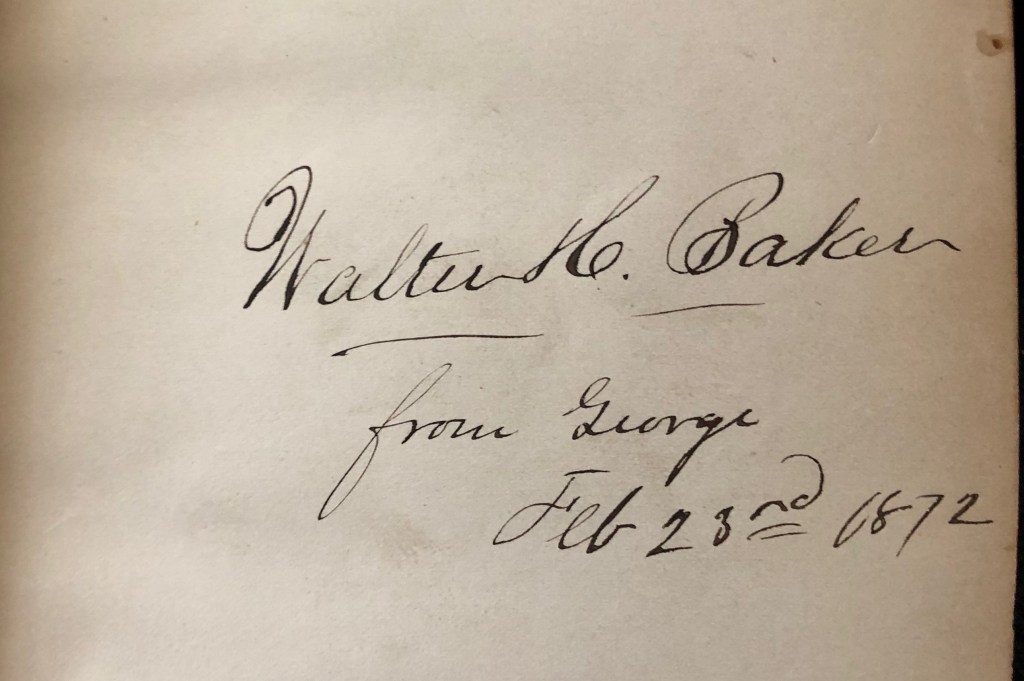 Walter H. Baker
from George
Feb 23nd 1872